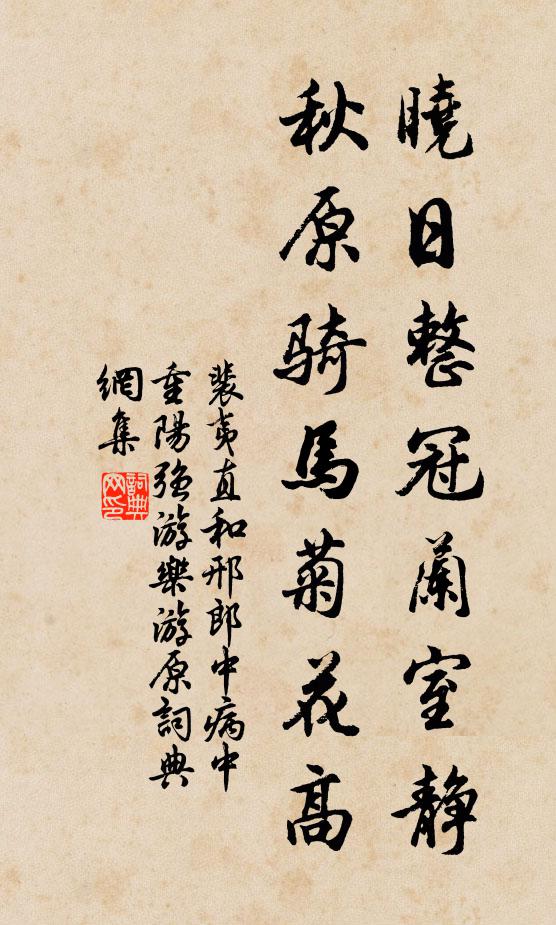 曉日整冠蘭室靜
秋原騎馬菊花高
裴夷直和邢郎中病中
重陽強游樂游原詞典
網集
詞典
网印